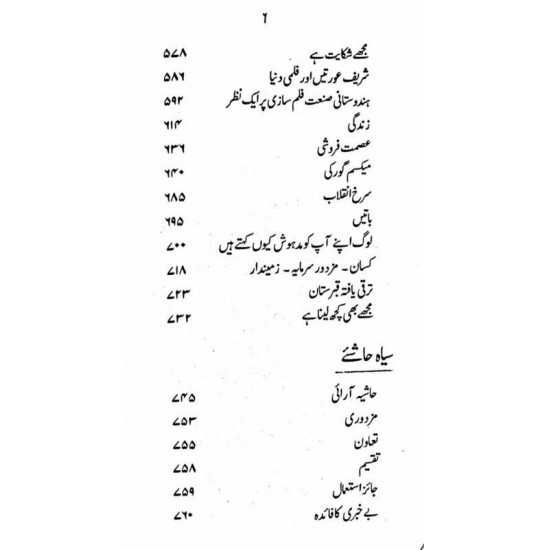 ۶
مجھے شکایت ہے ۵۷۸
شریف عورتیں اور فلمی دنیا ۵۸۶
ہندوستانی صنعت فلم سازی پر ایک نظر ۵۹۲
زندگی ۶۱۴
عصمت فروشی ۶۳۶
میکسم گورکی ۶۴۰
سرخ انقلاب ۶۸۵
باتیں ۶۹۵
لوگ اپنے آپ کو مدہوش کیوں کہتے ہیں ۷۰۰
کسان - مزدور سرمایہ - زمیندار ۷۱۸
ترقی یافتہ قبرستان ۷۲۳
مجھے بھی کچھ لینا ہے ۷۳۲
سیاہ حاشئے
حاشیہ آرائی ۷۴۵
مزدوری ۷۵۳
تعاون ۷۵۵
تقسیم ۷۵۸
جائز استعمال ۷۵۹
بے خبری کا فائدہ ۷۶۰